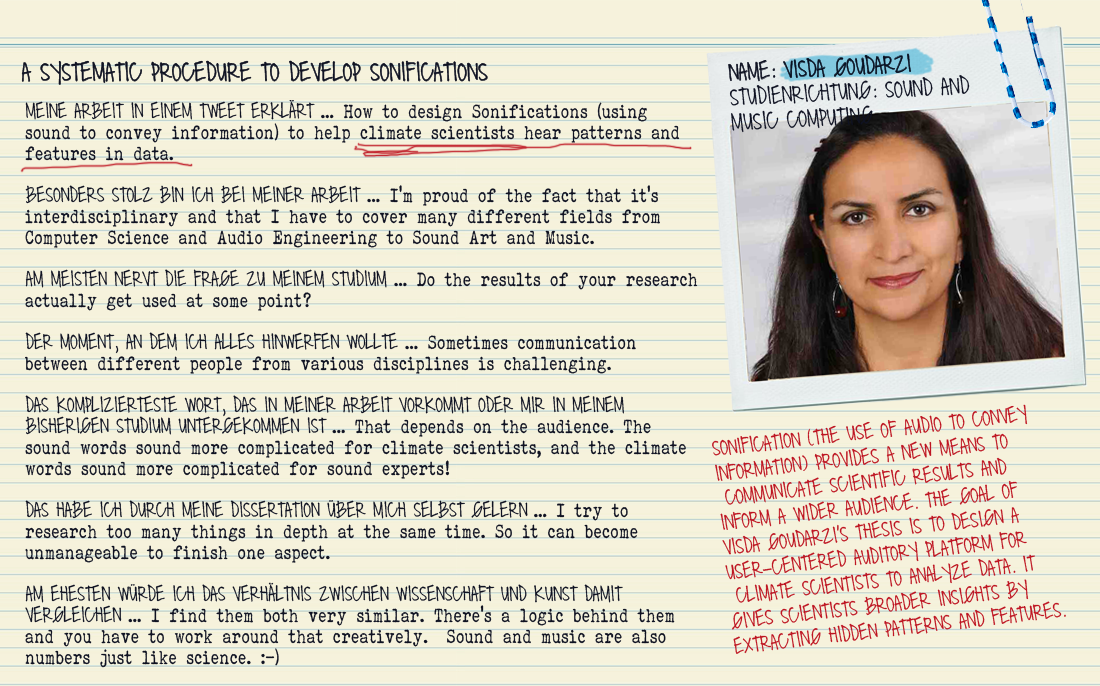 A SYSTEMATIC PROCEDURE TO DEVELOP SONIFICATIONS
MEINE ARBEIT IN EINEM TWEET ERKLÄRT ... How to design Sonifications (using
sound to convey information) to help climate scientists hear patterns and
features in data.
BESONDERS STOLZ BIN ICH BEI MEINER ARBEIT ... I'm proud of the fact that it's
interdisciplinary and that I have to cover many different fields from
Computer Science and Audio Engineering to Sound Art and Music.
AM MEISTEN NERVT DIE FRAGE ZU MEINEM STUDIUM ... Do the results of your research
actually get used at some point?
DER MOMENT, AN DEM ICH ALLES HINWERFEN WOLLTE ... Sometimes communication
between different people from various disciplines is challenging.
DAS KOMPLIZIERTESTE WORT, DAS IN MEINER ARBEIT VORKOMMT ODER MIR IN MEINEM
BISHERIGEN STUDIUM UNTERGEKOMMEN IST ... That depends on the audience. The
sound words sound more complicated for climate scientists, and the climate
words sound more complicated for sound experts!
DAS HABE ICH DURCH MEINE DISSERTATION ÜBER MICH SELBST GELERN ... I try to
research too many things in depth at the same time. So it can become
unmanageable to finish one aspect.
AM EHESTEN WÜRDE ICH DAS VERHÄLTNIS ZWISCHEN WISSENSCHAFT UND KUNST DAMIT
VERGLEICHEN ... I find them both very similar. There's a logic behind them
and you have to work around that creatively. Sound and music are also
numbers just like science. :-)
NAME: VISDA GOUDARZI
STUDIENRICHTUNG: SOUND AND
MUSIC COMPUTING
SONIFICATION (THE USE OF AUDIO TO CONVEY
INFORMATION) PROVIDES A NEW MEANS TO
COMMUNICATE SCIENTIFIC RESULTS AND
INFORM A WIDER AUDIENCE. THE GOAL OF
VISDA GOUDARZI'S THESIS IS TO DESIGN A
USER-CENTERED AUDITORY PLATFORM FOR
CLIMATE SCIENTISTS TO ANALYZE DATA. IT
GIVES SCIENTISTS BROADER INSIGHTS BY
EXTRACTING HIDDEN PATTERNS AND FEATURES.